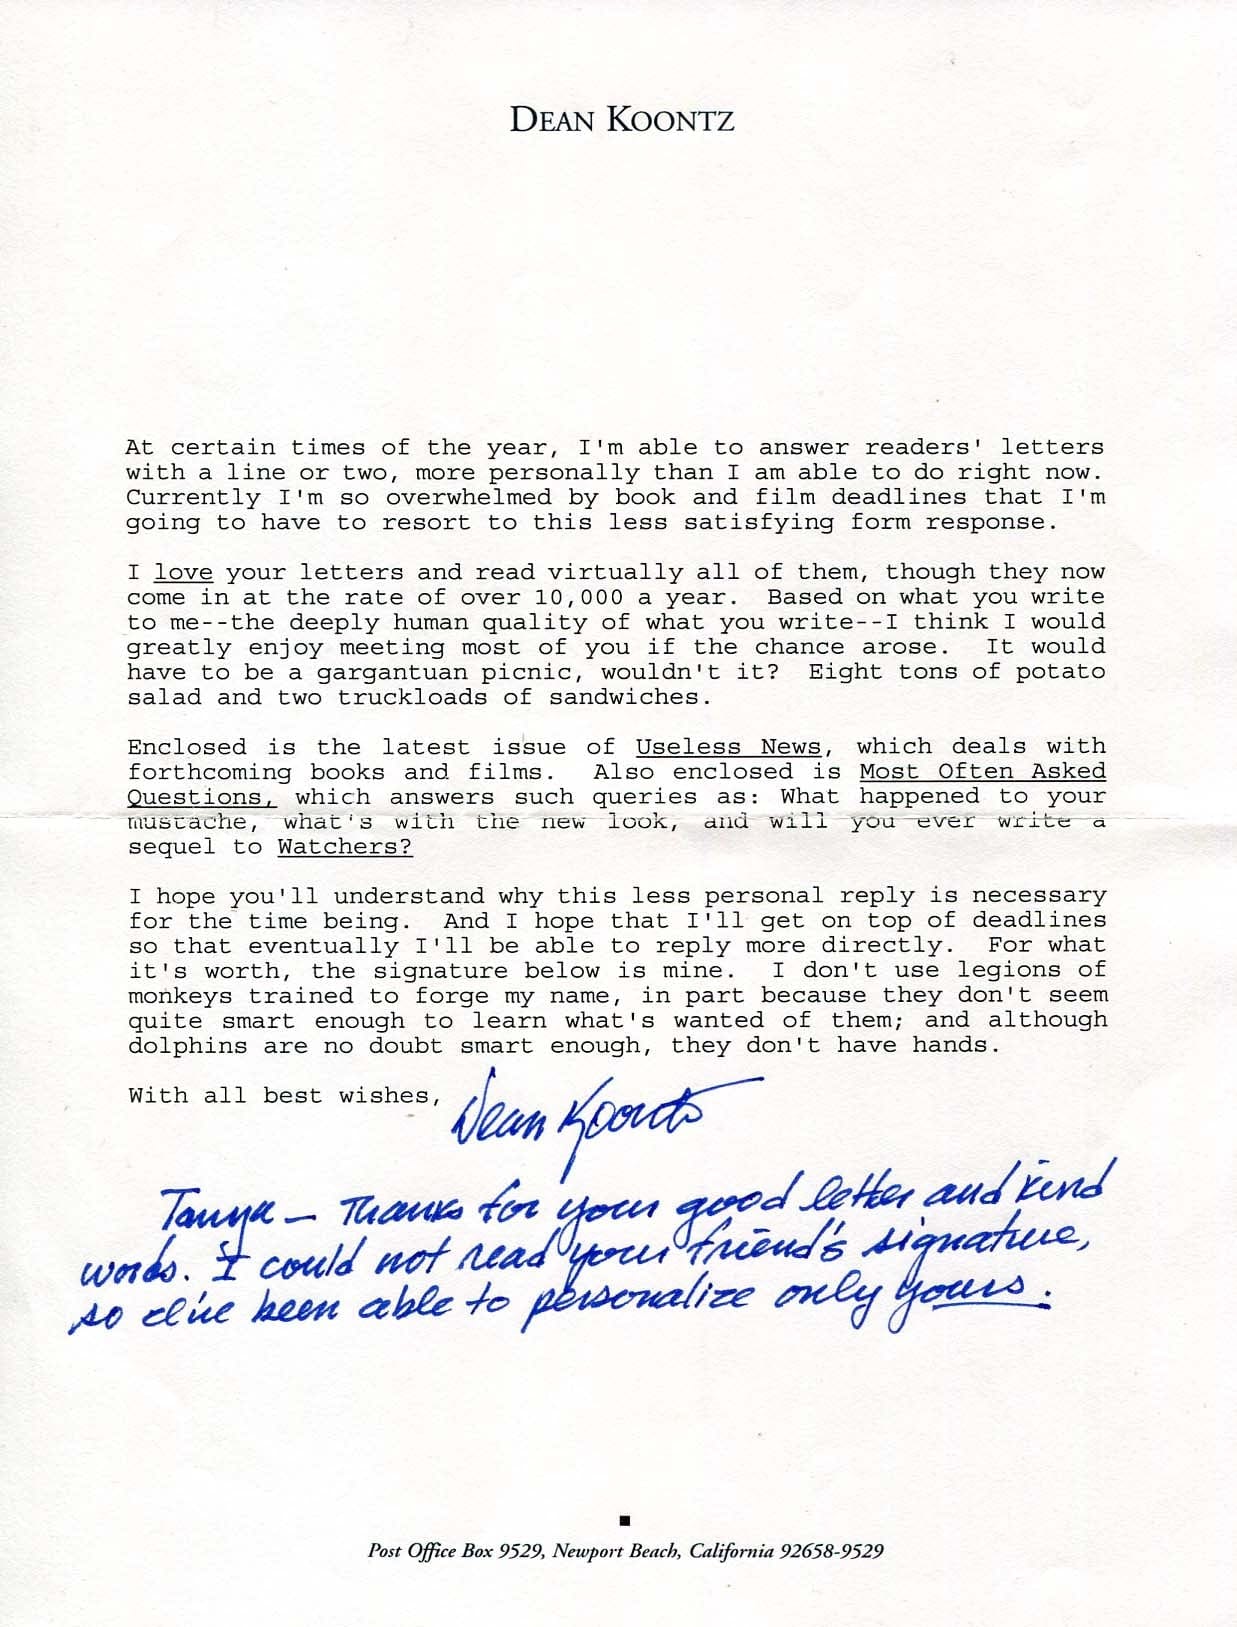 DEAN KOONTZ
At certain times of the year, I'm able to answer readers' letters
with a line or two, more personally than I am able to do right now.
Currently I'm so overwhelmed by book and film deadlines that I'm
going to have to resort to this less satisfying form response.
I love your letters and read virtually all of them, though they now
come in at the rate of over 10,000 a year.  Based on what you write
to me--the deeply human quality of what you write--I think I would
greatly enjoy meeting most of you if the chance arose.  It would
have to be a gargantuan picnic, wouldn't it?  Eight tons of potato
salad and two truckloads of sandwiches.
Enclosed is the latest issue of Useless News, which deals with
forthcoming books and films.  Also enclosed is Most Often Asked
Questions, which answers such queries as: What happened to your
mustache, what's with the new look, and will you ever write a
sequel to Watchers?
I hope you'll understand why this less personal reply is necessary
for the time being.  And I hope that I'll get on top of deadlines
so that eventually I'll be able to reply more directly.  For what
it's worth, the signature below is mine.  I don't use legions of
monkeys trained to forge my name, in part because they don't seem
quite smart enough to learn what's wanted of them; and although
dolphins are no doubt smart enough, they don't have hands.
With all best wishes, Dean Koontz
Tanya — Thanks for your good letter and kind
words. I could not read your friend's signature,
so I've been able to personalize only yours.
Post Office Box 9529, Newport Beach, California 92658-9529